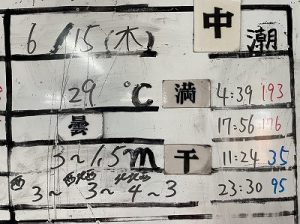 6/15(木) 中潮
29 ℃ 満 4:39 193
曇 17:56 176
3~1.5m 干 11:24 35
西 西北西 北北西
3~3~4~3 23:30 95